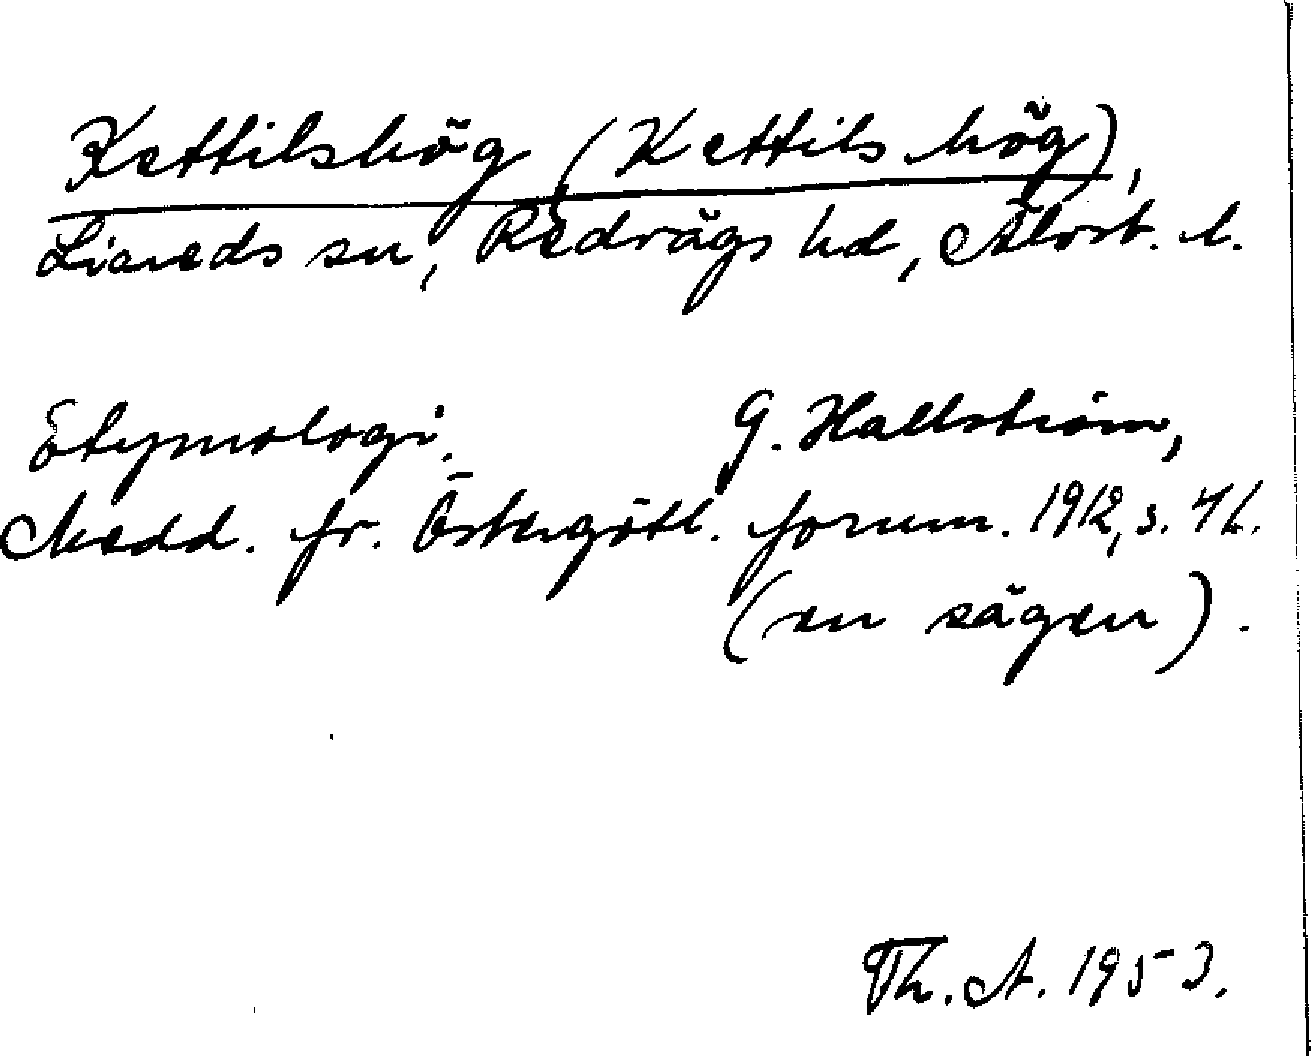 Kettilshög (Kettils hög),
Liareds sn, Redvägs hd, Älvsb. l.
Etymologi. G. Hallström,
Medd. fr. Östergötl. fornm. 1912, s. 4 f.
(en sägen).
Th. A. 1953.